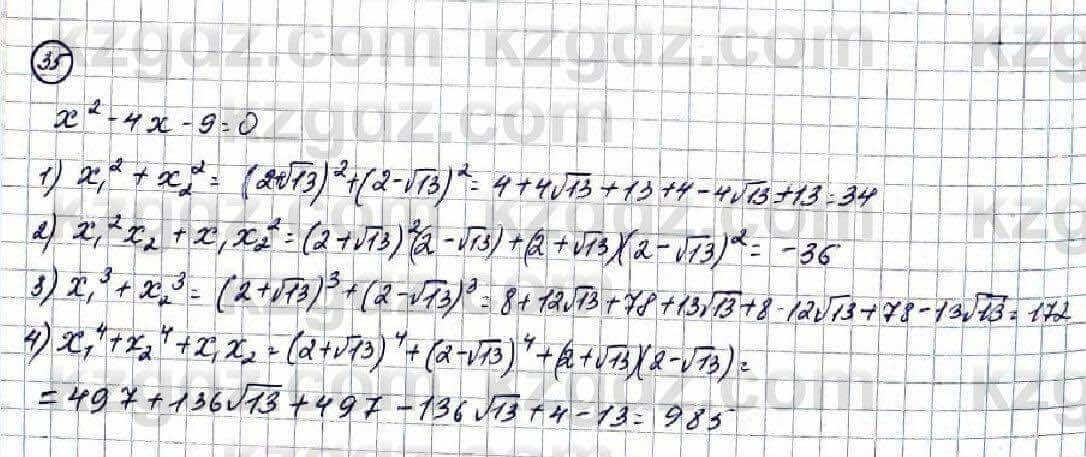 35
x² - 4x - 9 = 0
1) x₁² + x₂² = (2+√13)² + (2-√13)² = 4 + 4√13 + 13 + 4 - 4√13 + 13 = 34
2) x₁²x₂ + x₁x₂² = (2+√13)²(2-√13) + (2+√13)(2-√13)² = -36
3) x₁³ + x₂³ = (2+√13)³ + (2-√13)³ = 8 + 12√13 + 78 + 13√13 + 8 - 12√13 + 78 - 13√13 = 172
4) x₁⁴ + x₂⁴ + x₁x₂ = (2+√13)⁴ + (2-√13)⁴ + (2+√13)(2-√13) =
= 497 + 136√13 + 497 - 136√13 + 4 - 13 = 985